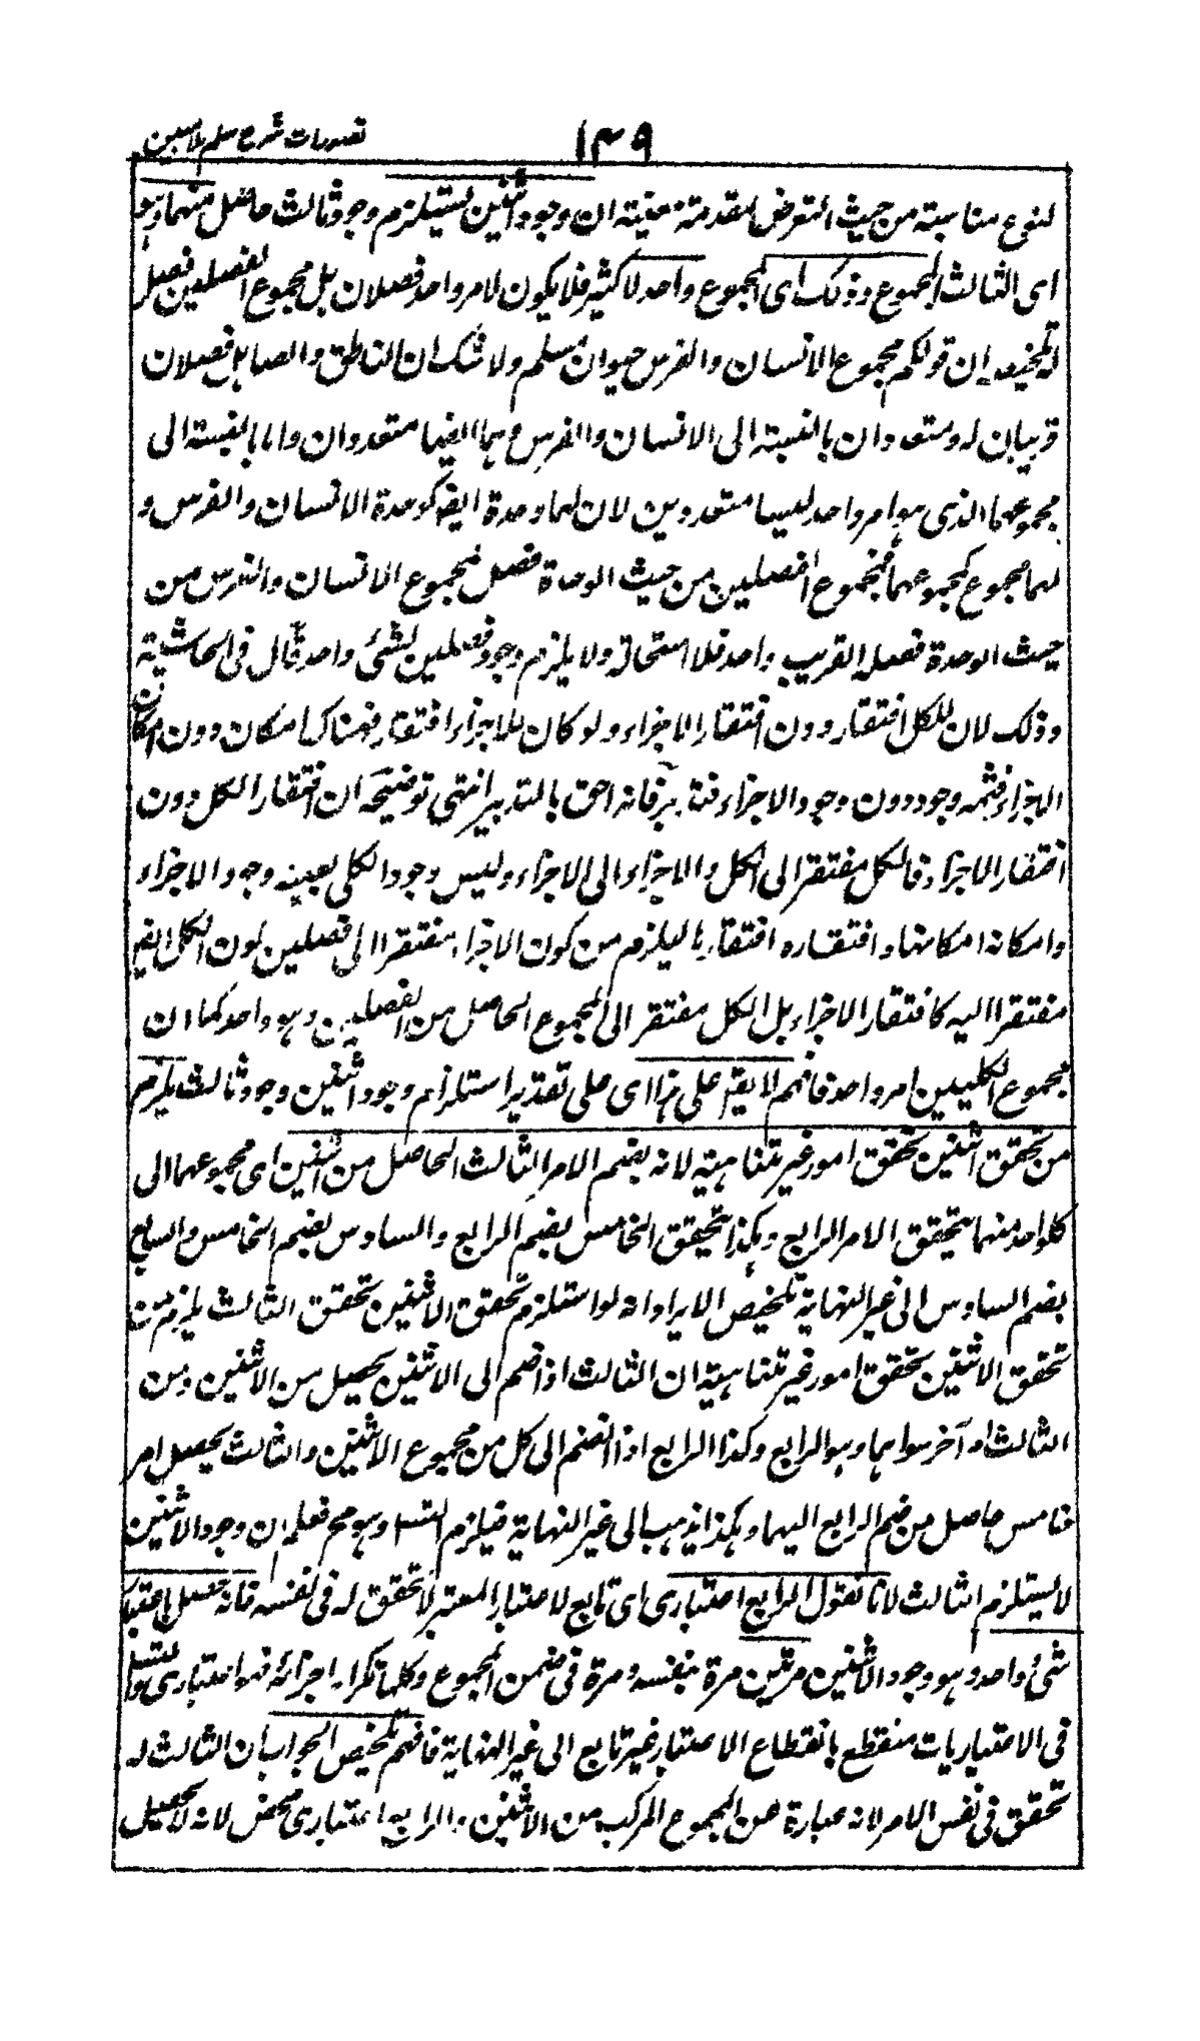 تصورات شرح سلم ملا مبین
۱۴۹
لنوع مناسبة من حيث التعرض لمقدمة معينة ان وجود اثنين يستلزم وجود ثالث حاصل منهما وهو
اى الثالث المجموع وذلك اى المجموع واحد لا كثير فلا يكون لامر واحد فصلان بل مجموع الفصلين فصل
له تلخيصه ان قولكم مجموع الانسان والفرس حيوان مسلم ولا شك ان الناطق والصاهل فصلان
قريبان له ومتعددان بالنسبة الى الانسان والفرس وهما ايضا متعددان واما بالنسبة الى
مجموعهما الذى هو امر واحد ليسا متعددين لان لهما وحدة ايضا كوحدة الانسان والفرس و
لهما مجموع كمجموعهما فمجموع الفصلين من حيث الوحدة فصل لمجموع الانسان والفرس من
حيث الوحدة فصله القريب واحد فلا استحالة ولا يلزم وجود فصلين لشئ واحد قال فى الحاشية
وذلك لان للكل افتقار دون افتقار الاجزاء ولو كان للاجزاء افتقار فهناك امكان دون امكان
الاجزاء فثمه وجود دون وجود الاجزاء فتدبر فانه احق بالتدبير انتهى توضيحه ان افتقار الكل دون
افتقار الاجزاء فالكل مفتقر الى الكل والاجزاء الى الاجزاء وليس وجود الكلى بعينه وجود الاجزاء
وامكانه امكانها وافتقاره افتقارها ليلزم من كون الاجزاء مفتقرا الى فصلين كون الكل ايضا
مفتقرا اليه كافتقار الاجزاء بل الكل مفتقر الى المجموع الحاصل من الفصلين وهو واحد كما ان
مجموع الكليين امر واحد فافهم لا يقال على هذا اى على تقدير استلزام وجود اثنين وجود ثالث يلزم
من تحقق اثنين تحقق امور غير متناهية لانه بضم الامر الثالث الحاصل من اثنين اى مجموعهما الى
كل واحد منهما يتحقق الامر الرابع وهكذا يتحقق الخامس بضم الرابع والسادس بضم الخامس والسابع
بضم السادس الى غير النهاية تلخيص الايراد انه لو استلزم تحقق الاثنين تحقق الثالث يلزم من
تحقق الاثنين تحقق امور غير متناهية ان الثالث اذا ضم الى الاثنين يحصل من الاثنين ومن
الثالث امر آخر سواهما وهو الرابع وكذا الرابع اذا انضم الى كل من مجموع الاثنين والثالث يحصل امر
خامس حاصل من ضم الرابع اليهما وهكذا يذهب الى غير النهاية فيلزم التسلسل وهو مح فعلم ان وجود الاثنين
لا يستلزم الثالث لانا نقول الرابع اعتبارى اى تابع لاعتبار المعتبر لا تحقق له فى نفسه فانه حصل باعتبار
شئ واحد وهو وجود الاثنين مرتين مرة بنفسه ومرة فى ضمن المجموع وكلما تكرار اجزائه فهو اعتبارى والتسلسل
فى الاعتباريات منقطع بانقطاع الاعتبار غير تابع الى غير النهاية فافهم تلخيص الجواب ان الثالث له
تحقق فى نفس الامر لانه عبارة عن المجموع المركب من الاثنين والرابع اعتبارى محض لانه لا يحصل